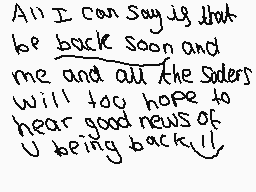 All I can say is that
be back soon and
me and all the Soders
will too hope to
hear good news of
U being back!!